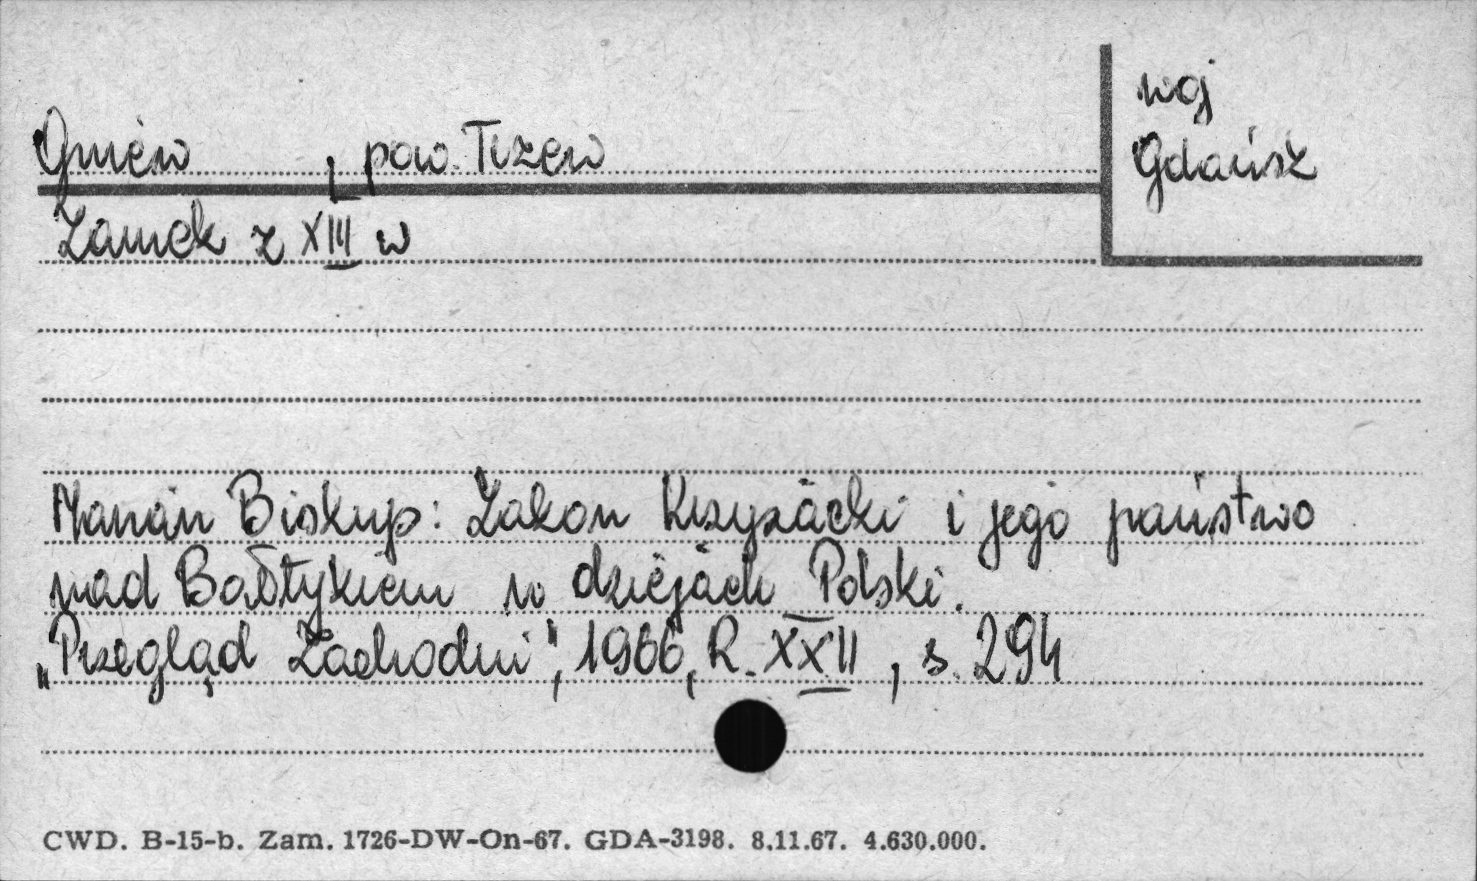 woj
Gdańsk
Gniew, pow. Tczew
Zamek z XIII w
Marian Biskup: Zakon Krzyżacki i jego państwo
nad Bałtykiem w dziejach Polski.
„Przegląd Zachodni", 1966, R. XXII, s. 294
CWD. B-15-b. Zam. 1726-DW-On-67. GDA-3198. 8.11.67. 4.630.000.